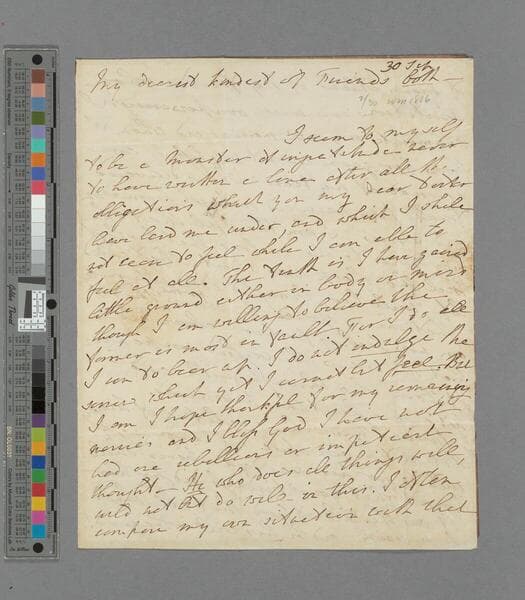 30 Feb
My dearest kindest of Friends both —
I seem to myself
to be a Monster of ingratitude never
to have written a line after all the
obligations which you my Dear Doctor
have laid me under, and which I shall
not cease to feel while I am able to
feel at all. The truth is I have gained
little ground either in body or mind
though I am willing to believe the
former is most in fault for I do all
I can to bear up. I do not indulge the
sorrow which yet I cannot but feel. But
I am I hope thankful for my remaining
mercies and I bless God I have not
had one rebellious or impatient
thought — He who does all things well,
will not but do well in this. I often
compare my own situation with that